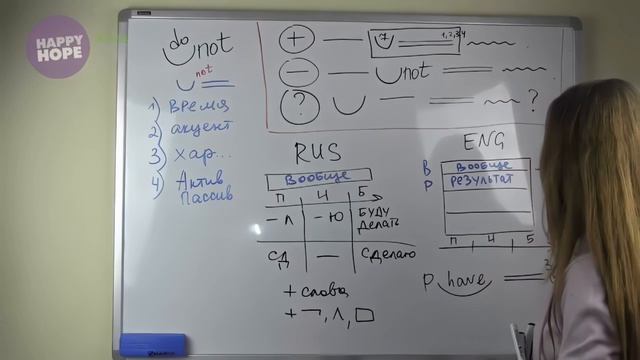 HAPPY
HOPE
do not
not
1) время
2) акцент
3) хар...
4) Актив
Пассив
+ 1,2,3,4 .
− not .
? ?
RUS
Вообще
П Н Б
-Л -Ю БУДУ
делать
СД — Сделаю
+ слова
+ ¬, Λ, □
ENG
В Вообще
Р результат
П Н Б
Р have